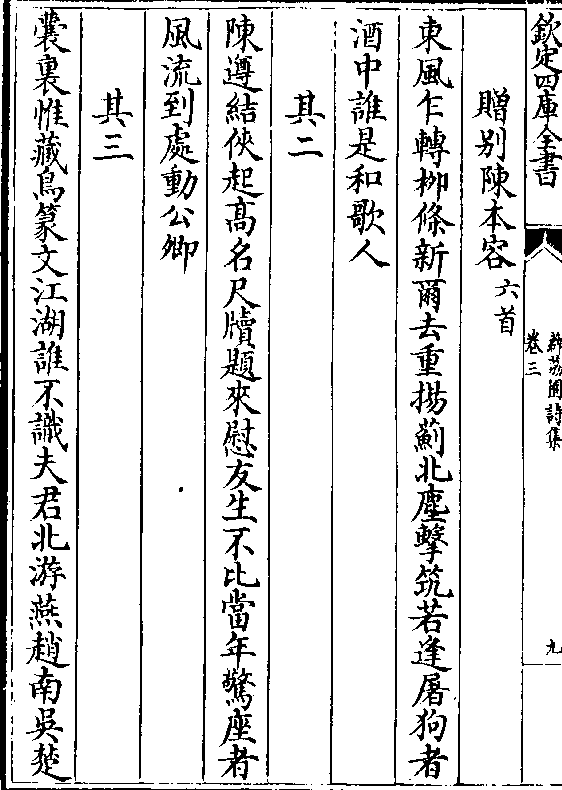 欽定四庫全書
薜荔園詩集
卷三
九
贈別陳本容六首
東風乍轉栁條新爾去重揚薊北塵擊筑若逢屠狗者
酒中誰是和歌人
其二
陳遵結俠起髙名尺牘題來慰友生不比當年驚座者
風流到處動公卿
其三
囊裏惟藏鳥篆文江湖誰不識夫君北游燕趙南吳楚